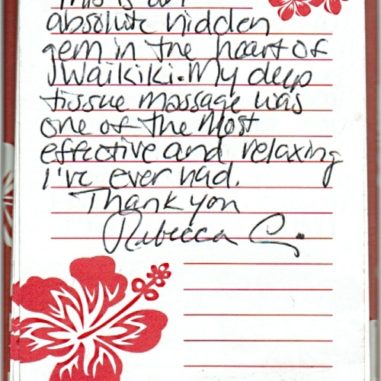 This is an
absolute hidden
gem in the heart of
Waikiki. My deep
tissue massage was
one of the most
effective and relaxing
I've ever had.
Thank you
Rebecca C.